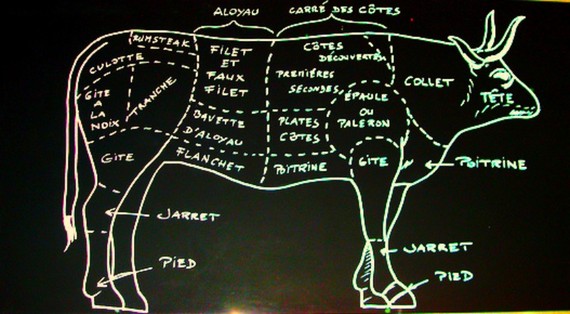 ALOYAU
CARRÉ DES CÔTES
RUMSTEAK
CULOTTE
GÎTE
A
LA
NOIX
TRANCHE
GÎTE
FILET
ET
FAUX
FILET
BAVETTE
D'ALOYAU
FLANCHET
CÔTES
DÉCOUVERTES
PREMIÈRES
SECONDES
PLATES
CÔTES
POITRINE
ÉPAULE
OU
PALERON
GÎTE
COLLET
TÊTE
POITRINE
JARRET
PIED
JARRET
PIED